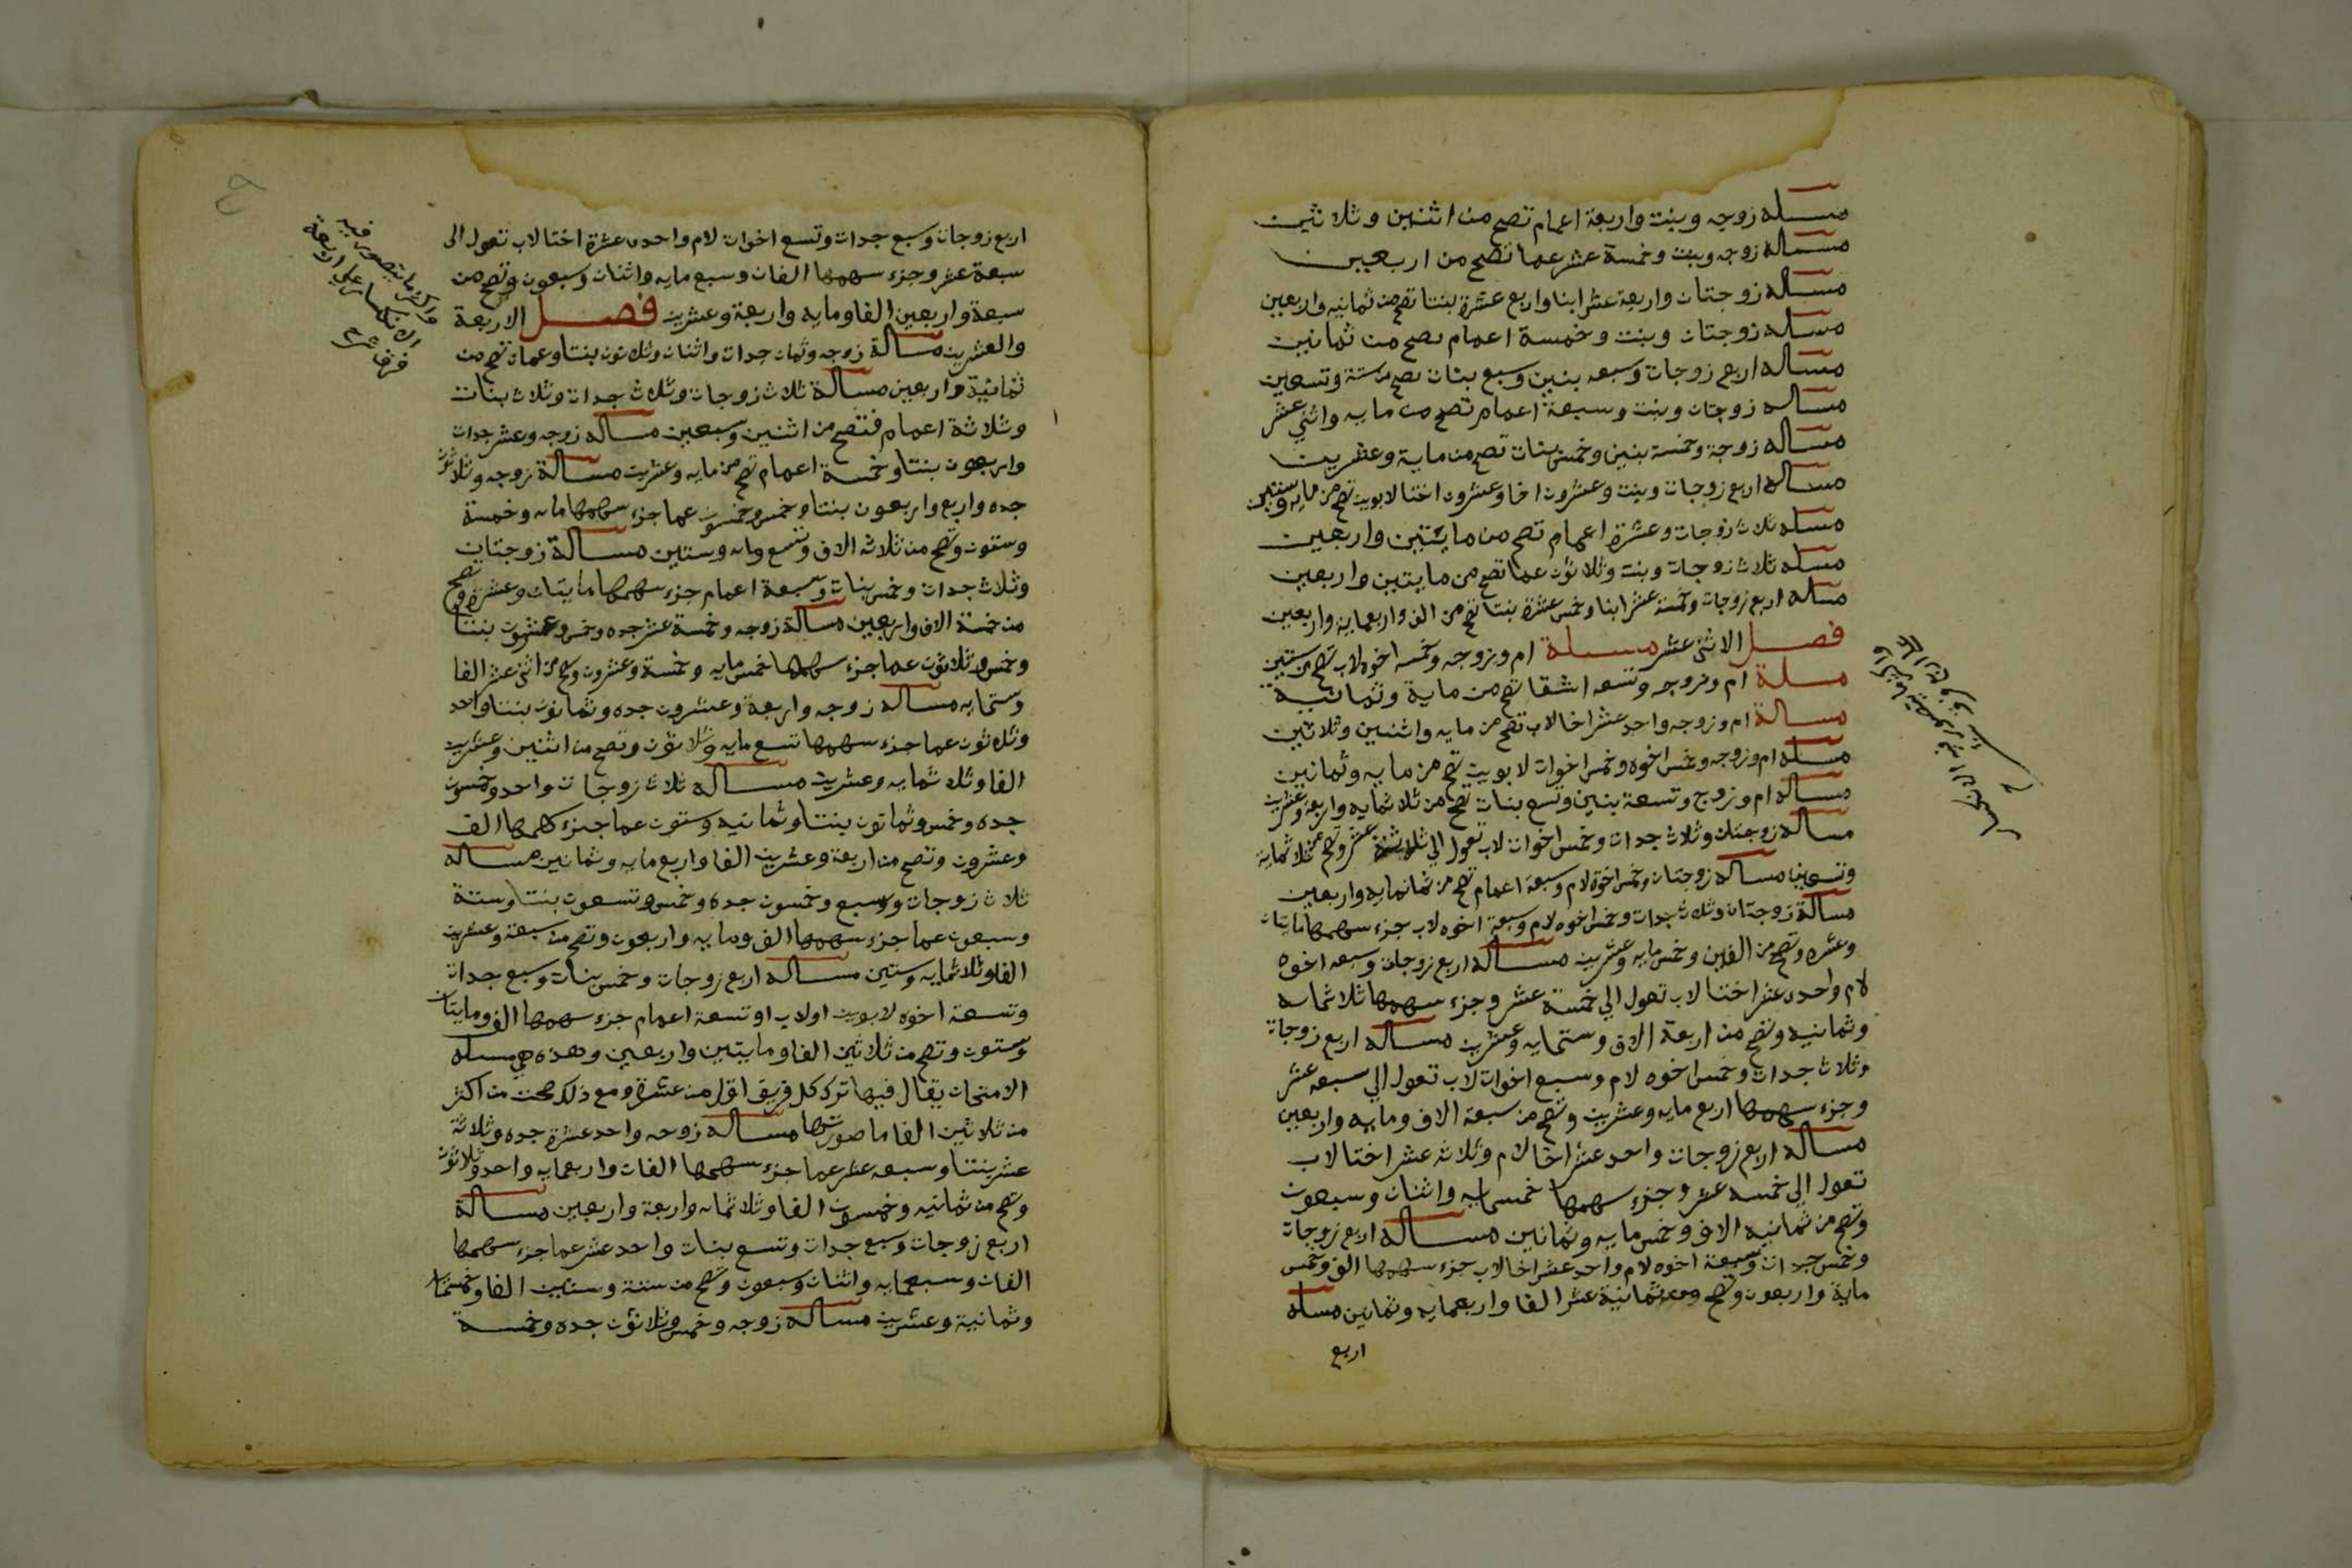 مسىله زوجه وبنت واربعة اعمام تصح من اثنين وثلاثين
مساله زوجه وبنت وخمسة عشر عما تصح من اربعين
مساله زوجتان واربعة عشر ابنا واربع عشرة بنتا تصح من ثمانيه واربعين
مسىله زوجتان وبنت وخمسة اعمام تصح من ثمانين
مساله اربع زوجات وسبعه بنين وسبع بنات تصح من ستة وتسعين
مساله زوجتان وبنت وسبعة اعمام تصح من مايه واثني عشر
مساله زوجة وخمسة بنين وخمس بنات تصح من ماية وعشرين
مساله اربع زوجات وبنت وعشرون اخا وعشرون اختا لابوين تصح من مايه وستين
مسله ثلاث زوجات وعشرة اعمام تصح من مايتين واربعين
مسله ثلاث زوجات وبنت وثلاثون عما تصح من مايتين واربعين
مساله اربع زوجات وخمسة عشر ابنا وخمس عشرة بنتا تصح من الف واربعمايه واربعين
فصل الاثنى عشر مسىلة ام وزوجه وخمسه اخوه لاب تصح من ستين
مسىلة ام وزوجه وتسعه اشقا تصح من ماية وثمانية
مسالة ام وزوجه واحد عشر اخا لاب تصح من مايه واثنين وثلاثين
مسله ام وزوجه وخمس اخوه وخمس اخوات لابوين تصح من مايه وثمانين
مساله ام وزوج وتسعة بنين وتسع بنات تصح من ثلاثمايه واربعة وعشرين
مساله زوجتان وثلاث جدات وخمس اخوات لاب تعول الي ثلاثة عشر وتصح من ثلاثماية
وتسعين مساله زوجتان وخمس اخوة لام وسبعة اعمام تصح من ثمانمايه واربعين
مسالة زوجتان وثلاث جدات وخمس اخوه لام وسبعة اخوه لاب جزء سهمها مايتان
وعشره وتصح من الفين وخمس مايه وعشرين مساله اربع زوجات وسبعه اخوه
لام واحده عشر اختا لاب تعول الي خمسة عشر وجزء سهمها ثلاثمايه
وثمانيه وتصح من اربعة الاف وستمايه وعشرين مساله اربع زوجات
وثلاث جدات وخمس اخوه لام وسبع اخوات لاب تعول الي سبعه عشر
وجزء سهمها اربع مايه وعشرين وتصح من سبعة الاف ومايه واربعين
مساله اربع زوجات واحد عشر اخا لام وثلاثه عشر اختا لاب
تعول الي خمسه عشر وجزء سهمها خمسمايه واثنان وسبعون
وتصح من ثمانيه الاف وخمس مايه وثمانين مساله اربع زوجات
وخمس جدات وسبعة اخوه لام واحد عشر اخا لاب جزء سهمها الف وخمس
ماية واربعون وتصح من ثمانية عشر الفا واربعمايه وثمانين مسله
اربع
اربع زوجات وسبع جدات وتسع اخوات لام واحده عشرة اختا لاب تعول الى
سبعة عشر وجزء سهمها الفان وسبع مايه واثنان وسبعون وتصح من
سبعة واربعين الفا ومايه واربعة وعشرين فصل الاربعة
والعشرين مسالة زوجه وثمان جدات واثنان وثلاثون بنتا وعمان تصح من
ثمانية واربعين مسالة ثلاث زوجات وثلاث جدات وثلاث بنات
وثلاثة اعمام فتصح من اثنين وسبعين مساله زوجه وعشر جدات
واربعون بنتا وخمسة اعمام تصح من مايه وعشرين مسالة زوجه وثلاثون
جده واربع واربعون بنتا وخمس وخمسون عما جزء سهمها مايه وخمسة
وستون وتصح من ثلاثه الاف وتسع مايه وستين مسالة زوجتان
وثلاث جدات وخمس بنات وسبعة اعمام جزء سهمها مايتان وعشرة وتصح
من خمسة الاف واربعين مسالة زوجه وخمسة عشر جده وخمس وعشرون بنتا
وخمس وثلاثون عما جزء سهمها خمس مايه وخمسة وعشرون وتصح من اثنى عشر الفا
وستمايه مساله زوجه واربعة وعشرون جده وثمانون بنتا واحد
وثلاثون عما جزء سهمها تسع مايه وثلاثون وتصح من اثنين وعشرين
الفا وثلاثمايه وعشرين مساله ثلاث زوجات واحد وخمسون
جده وخمس وثمانون بنتا وثمانيه وستون عما جزء سهمها الف
وعشرون وتصح من اربعة وعشرين الفا واربع مايه وثمانين مساله
ثلاث زوجات وسبع وخمسون جده وخمس وتسعون بنتا وستة
وسبعون عما جزء سهمها الف ومايه واربعون وتصح من سبعة وعشرين
الفا وثلاثمايه وستين مساله اربع زوجات وخمس بنات وسبع جدات
وتسعة اخوه لابوين اولاب او تسعة اعمام جزء سهمها الف ومايتان
وستون وتصح من ثلاثين الفا ومايتين واربعين وهذه هي مسىله
الامتحان يقال فيها ترك كل فريق اقل من عشرة ومع ذلك صحت من اكثر
من ثلاثين الفا ما صورتها مساله زوجه واحد عشرة جده وثلاثة
عشر بنتا وسبعه عشر عما جزء سهمها الفان واربعمايه واحد وثلاثون
وتصح من ثمانيه وخمسون الفا وثلاثمايه واربعة واربعين مسالة
اربع زوجات وسبع جدات وتسع بنات واحد عشر عما جزء سهمها
الفان وسبعمايه واثنان وسبعون وتصح من ستة وستين الفا وخمسمايه
وثمانية وعشرين مساله زوجه وخمس وثلاثون جده وخمسة
واكثر ما يتصور فيه
الانكسار علي اربعة
فرق